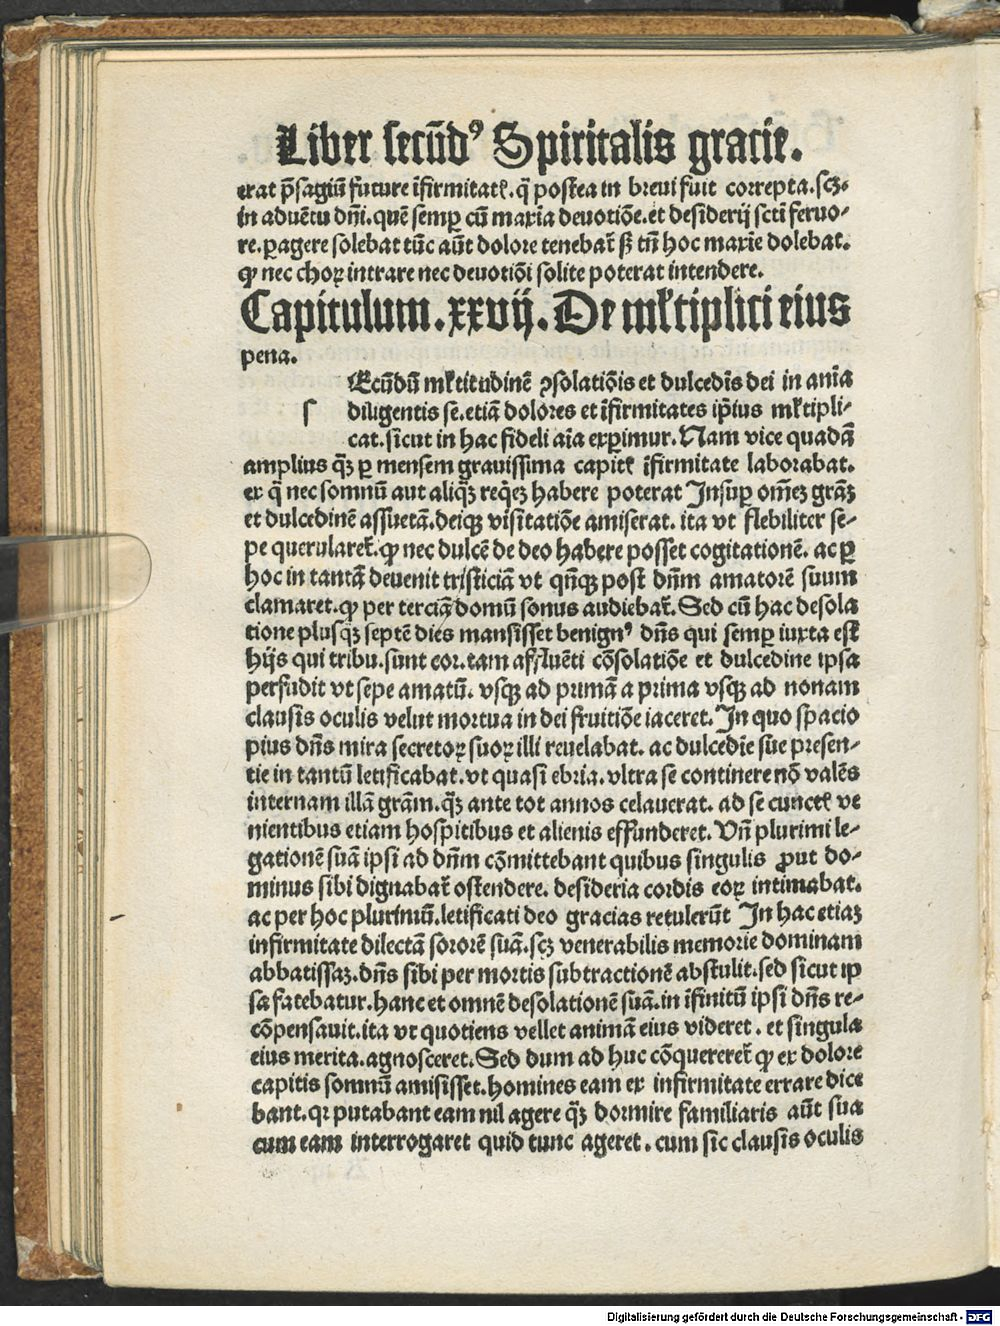 Liber secūdꝰ Spiritalis gracie.
erat p̄sagiū future īfirmitatꝭ. q̄ postea in breui fuit correpta. scꝫ.
in aduētu dn̄i. quē semꝑ cū maxīa deuotiōe. et desiderij sctī feruo-
re. ꝑagere solebat tūc aūt dolore tenebat᷑ ꝭ tn̄ hoc maxīe dolebat.
ꝙ nec choꝝ intrare nec deuotiōi solite poterat intendere.
Capitulum. xxvij. De mĺtiplici eius
pena.
Ecūdū mĺtitudinē ꝯsolatiōis et dulcedīs dei in anīa
ſ diligentis se. etiā dolores et īfirmitates ip̄ius mĺtipli-
cat. sicut in hac fideli aīa exꝑimur. Nam vice quadā
amplius qꝫ̄ ꝑ mensem grauissima capitꝭ īfirmitate laborabat.
ex q̄ nec somnū aut aliqꝫ̄ req̇eꝫ habere poterat Insuꝑ om̄eꝫ grāꝫ
et dulcedinē assuetā. deiqꝫ visitatiōe amiserat. ita vt flebiliter se-
pe querularet᷑. ꝙ nec dulcē de deo habere posset cogitationē. ac ꝑ
hoc in tantā deuenit tristiciā vt qn̄qꝫ post dn̄m amatorē suum
clamaret. ꝙ per terciā domū sonus audiebat᷑. Sed cū hac desola
tione plusqꝫ̄ septē dies mansisset benignꝰ dn̄s qui semꝑ iuxta est
hijs qui tribu. sunt cor. tam affluēti cōsolatiōe et dulcedine ipsa
perfudit vt sepe amatū. vsqꝫ ad primā a prima vsqꝫ ad nonam
clausis oculis velut mortua in dei fruitiōe iaceret. In quo spacio
pius dn̄s mira secretoꝝ suoꝝ illi reuelabat. ac dulcedīe sue presen-
tie in tantū letificabat. vt quasi ebria. vltra se continere nō valēs
internam illā grām. qꝫ̄ ante tot annos celauerat. ad se cunctꝭ ve
nientibus etiam hospitibus et alienis effunderet. Vn̄ plurimi le-
gationē suā ipsi ad dn̄m cōmittebant quibus singulis ꝓut do-
minus sibi dignabat᷑ ostendere. desideria cordis eoꝝ intimabat.
ac per hoc plurimū. letificati deo gracias retulerūt In hac etiaꝫ
infirmitate dilectā sororē suā. scꝫ venerabilis memorie dominam
abbatissaꝫ. dn̄s sibi per mortis subtractionē abstulit. sed sicut ip
sa fatebatur. hanc et omnē desolationē suā. in īfinitū ipsi dn̄s re-
cōpensauit. ita vt quotiens vellet animā eius videret. et singula
eius merita. agnosceret. Sed dum ad huc cōquereret᷑ ꝙ ex dolore
capitis somnū amisisset. homines eam ex infirmitate errare dice
bant. qꝛ putabant eam nil agere qꝫ̄ dormire familiaris aūt sua
cum eam interrogaret quid tunc ageret. cum sic clausis oculis
Digitalisierung gefördert durch die Deutsche Forschungsgemeinschaft - DFG